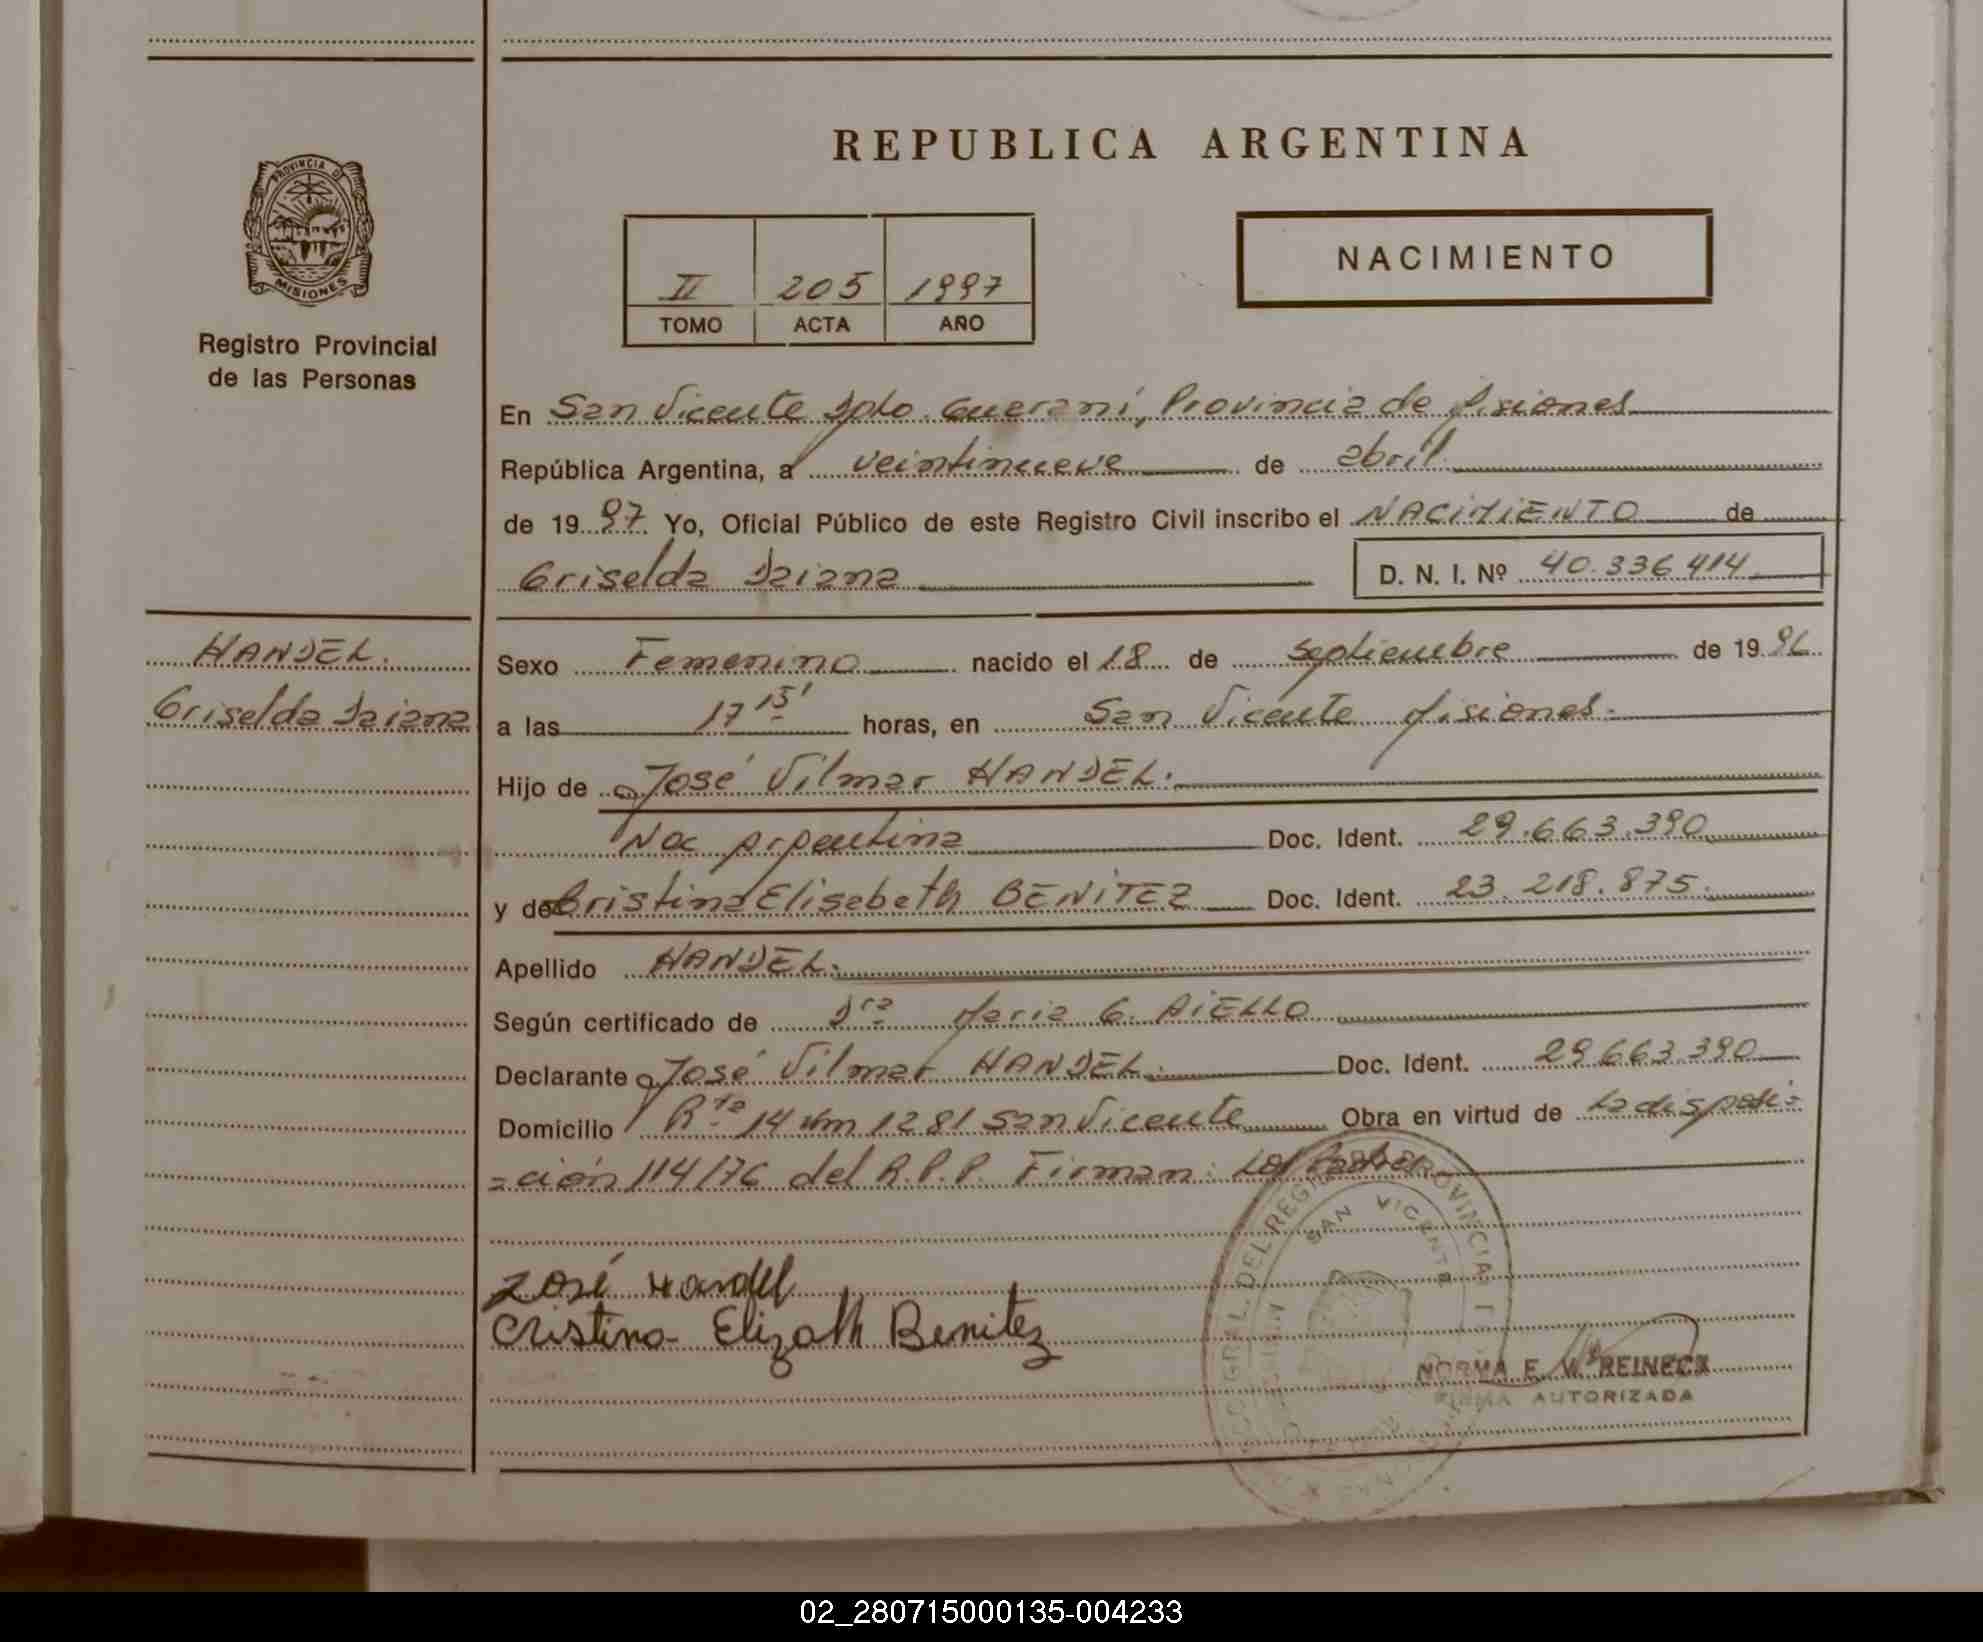 REPUBLICA ARGENTINA
PROVINCIA DE
MISIONES
Registro Provincial
de las Personas
II 205 1997
TOMO ACTA AÑO
NACIMIENTO
En San Vicente Dpto. Guarani, Provincia de Misiones
República Argentina, a veintinueve de abril
de 1997 Yo, Oficial Público de este Registro Civil inscribo el NACIMIENTO de
Griselda Daiana D. N. I. Nº 40.336.414
HANDEL.
Griselda Daiana
Sexo Femenino nacido el 18 de septiembre de 1996
a las 17 15' horas, en San Vicente Misiones.
Hijo de José Vilmar HANDEL.
Nac Argentina Doc. Ident. 29.663.390
y de Cristina Elisabeth BENITEZ Doc. Ident. 23.218.875.
Apellido HANDEL.
Según certificado de Dra Maria G. AIELLO
Declarante José Vilmar HANDEL. Doc. Ident. 29.663.390
Domicilio Rta 14 km 1281 San Vicente Obra en virtud de La disposi-
-ción 114/76 del R.P.P. Firman: Los Padres
José Handel
Cristina Elizath Benitez
SAN VICENTE
NORMA E. W. REINECK
FIRMA AUTORIZADA
02_280715000135-004233